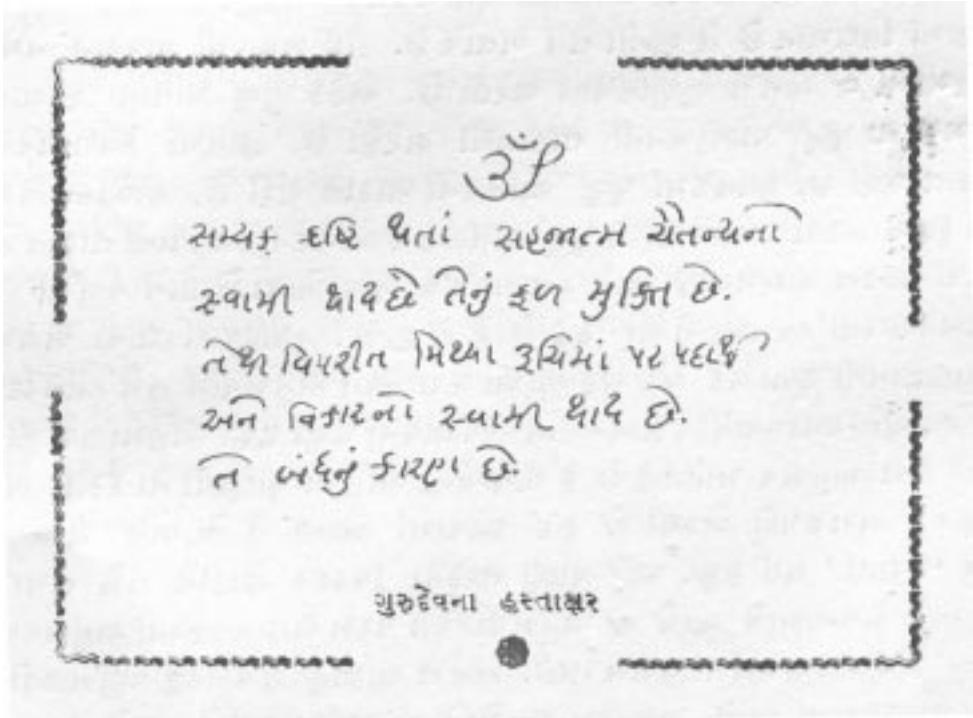 ૐ
સમ્યક્ દ્રષ્ટિ થતાં સહજાત્મ ચૈતન્યનો
સ્વામી થાય છે તેનું ફળ મુક્તિ છે.
તેથી વિપરીત મિથ્યા રુચિમાં પર પદાર્થ
અને વિકારનો સ્વામી થાય છે.
તે બંધનું કારણ છે.
ગુરુદેવના હસ્તાક્ષર